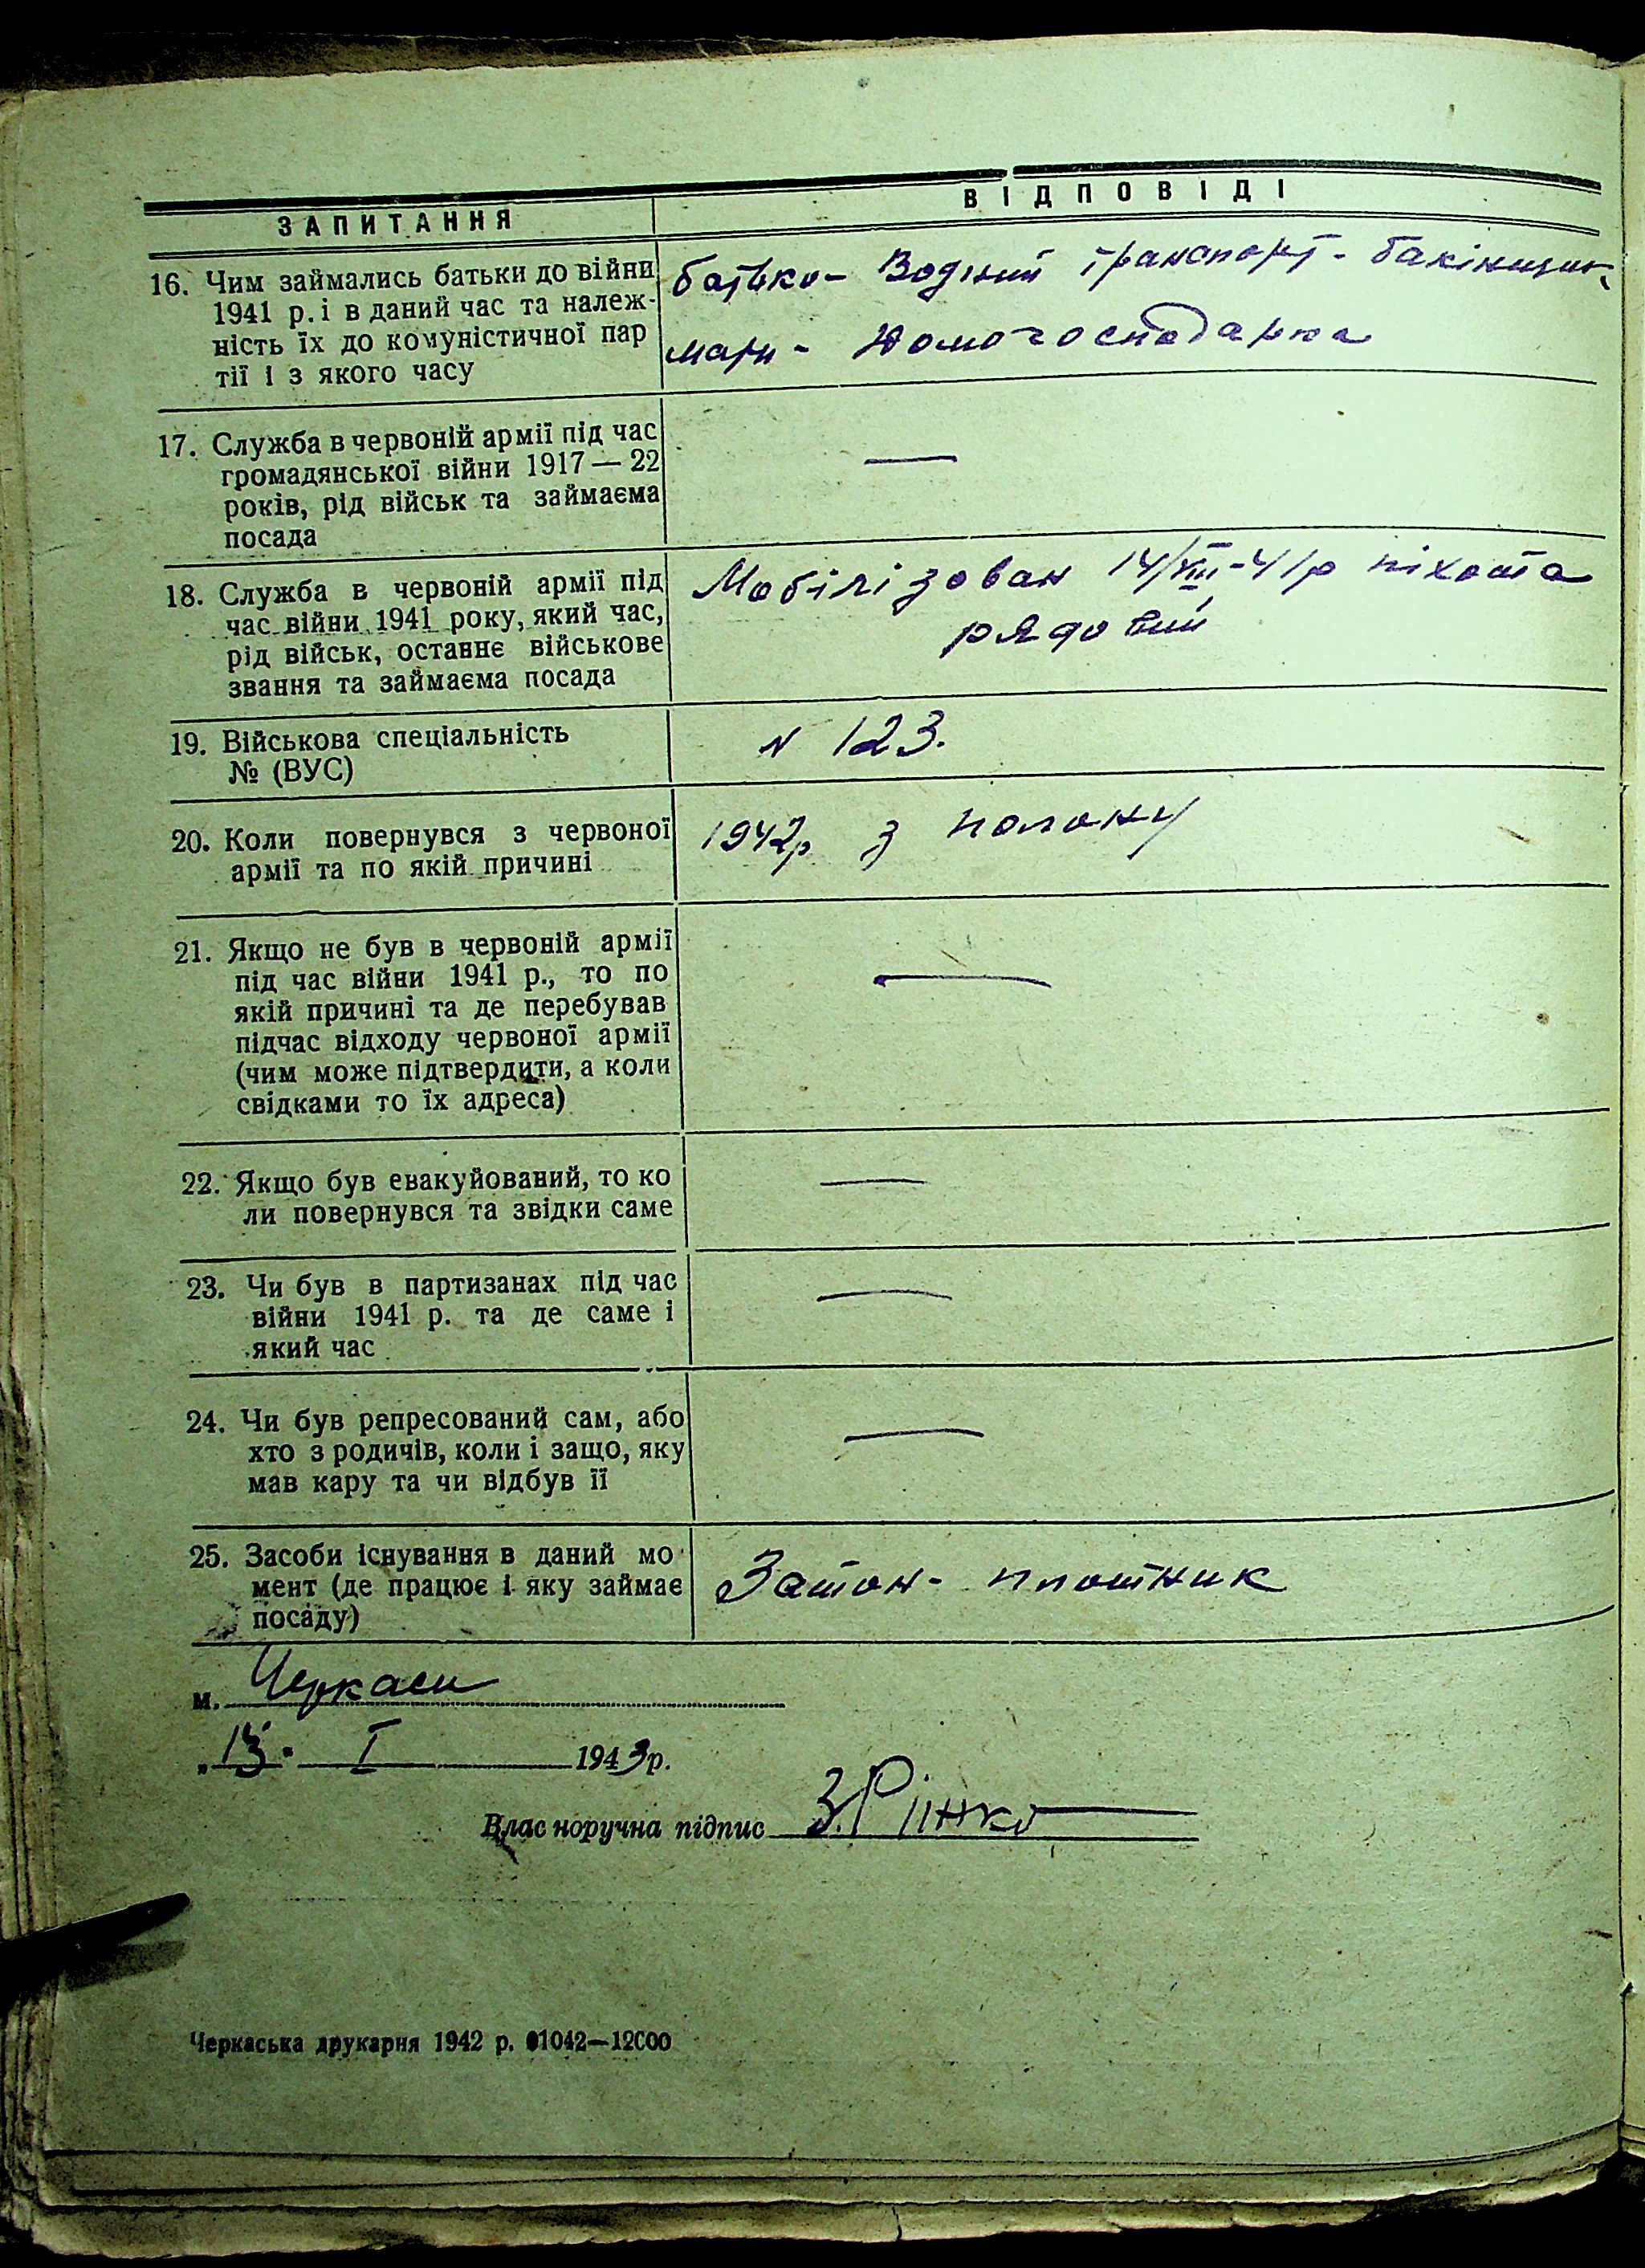 ЗАПИТАННЯ
ВІДПОВІДІ
16. Чим займались батьки до війни
1941 р. і в даний час та належ-
ність їх до комуністичної пар
тії і з якого часу
батько - Водний транспорт - бакінщик
мати - Домогосподарка
17. Служба в червоній армії під час
громадянської війни 1917 — 22
років, рід військ та займаєма
посада
—
18. Служба в червоній армії під
час війни 1941 року, який час,
рід військ, останнє військове
звання та займаєма посада
Мобілізован 14/VIII-41р піхота
рядовий
19. Військова спеціальність
№ (ВУС)
N 123.
20. Коли повернувся з червоної
армії та по якій причині
1942р з полону
21. Якщо не був в червоній армії
під час війни 1941 р., то по
якій причині та де перебував
підчас відходу червоної армії
(чим може підтвердити, а коли
свідками то їх адреса)
—
22. Якщо був евакуйований, то ко
ли повернувся та звідки саме
—
23. Чи був в партизанах під час
війни 1941 р. та де саме і
який час
—
24. Чи був репресований сам, або
хто з родичів, коли і защо, яку
мав кару та чи відбув її
—
25. Засоби існування в даний мо
мент (де працює і яку займає
посаду)
Затон - плотник
м. Черкаси
„13" I 1943р.
Власноручна підпис
Черкаська друкарня 1942 р. 01042—12000